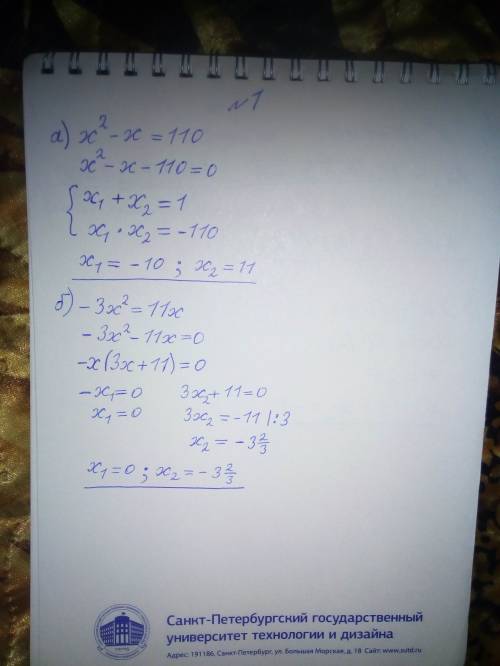 №1
а) x² - x = 110
x² - x - 110 = 0
{ x₁ + x₂ = 1
x₁ · x₂ = -110
x₁ = -10 ; x₂ = 11
б) - 3x² = 11x
- 3x² - 11x = 0
-x(3x + 11) = 0
-x₁ = 0 3x₂ + 11 = 0
x₁ = 0 3x₂ = -11 |:3
x₂ = - 3 2/3
x₁ = 0 ; x₂ = - 3 2/3
Санкт-Петербургский государственный
университет технологии и дизайна
Адрес: 191186, Санкт-Петербург, ул. Большая Морская, д. 18 Сайт: www.sutd.ru